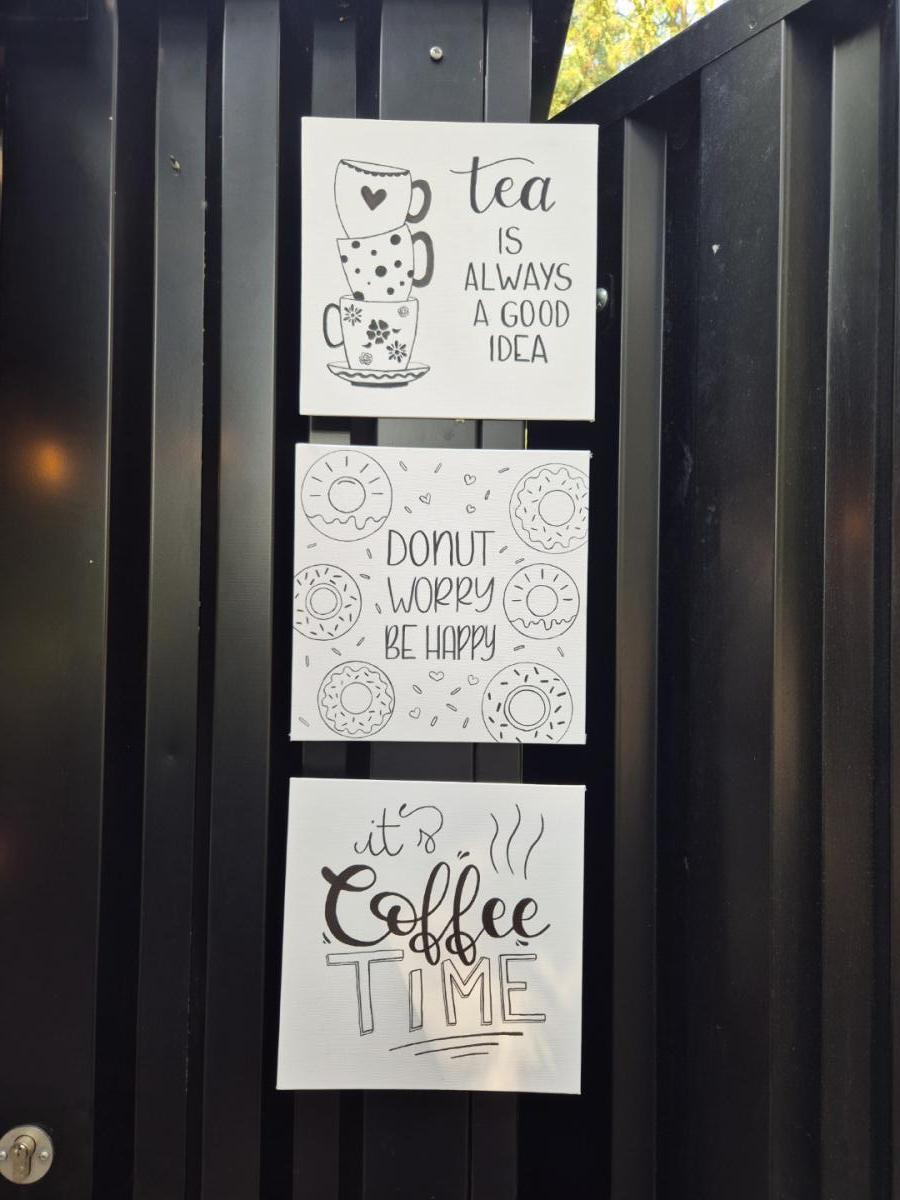 tea
IS
ALWAYS
A GOOD
IDEA
DONUT
WORRY
BE HAPPY
it's
Coffee
TIME